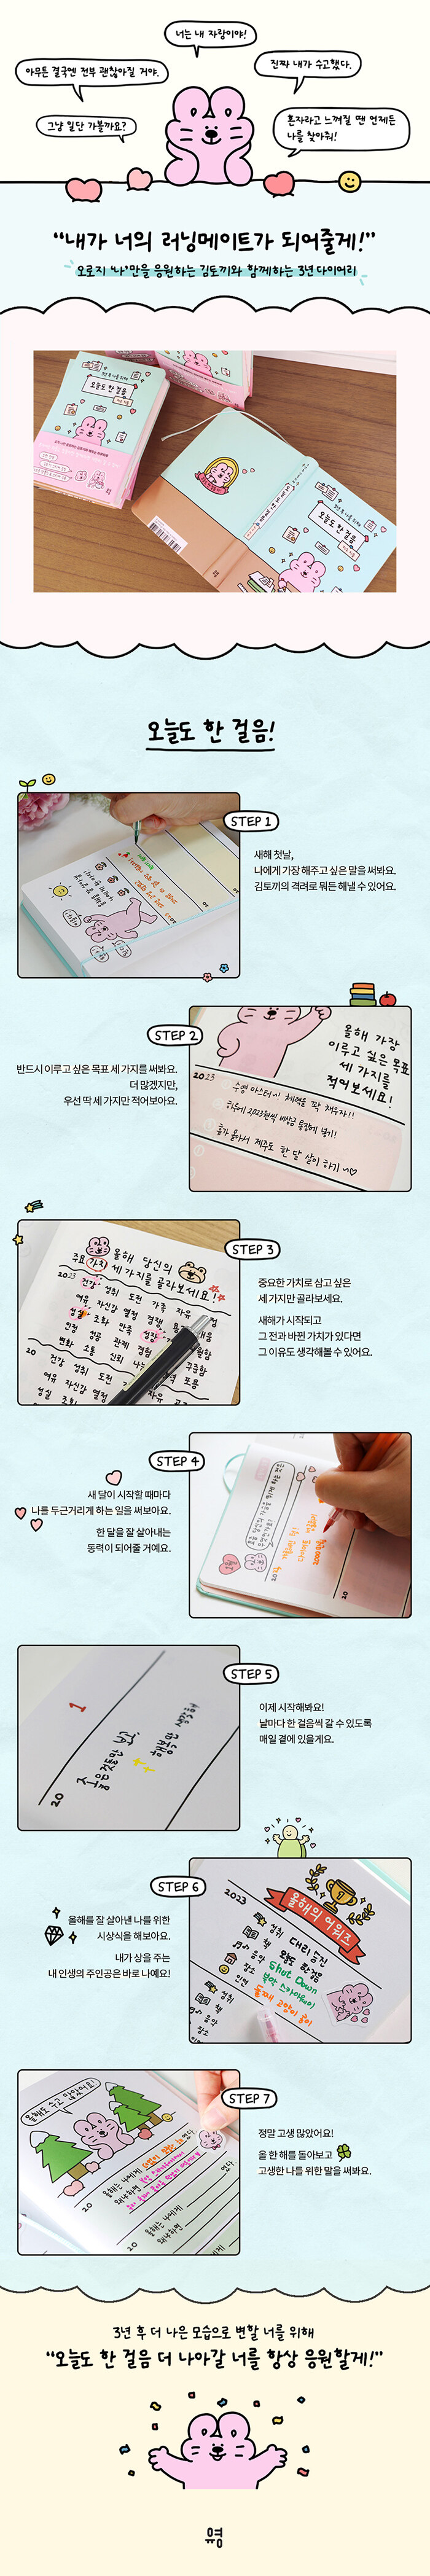 너는 내 자랑이야!
진짜 내가 수고했다.
아무튼 결국엔 전부 괜찮아질 거야.
그냥 일단 가볼까요?
혼자라고 느껴질 땐 언제든
나를 찾아줘!
“내가 너의 러닝메이트가 되어줄게!”
오로지 ‘나’만을 응원하는 김토끼와 함께하는 3년 다이어리
오늘도 한 걸음
오늘도 한 걸음
오늘도 한 걸음!
STEP 1
새해 첫날,
나에게 가장 해주고 싶은 말을 써봐요.
김토끼의 격려로 뭐든 해낼 수 있어요.
STEP 2
반드시 이루고 싶은 목표 세 가지를 써봐요.
더 많겠지만,
우선 딱 세 가지만 적어보아요.
올해 가장
이루고 싶은 목표
세 가지를
적어보세요!
2023
수영 마스터
하루에 2023원씩 비상금 통장에 넣기!
휴가 모아서 제주도 한 달 살이 하기
STEP 3
중요한 가치로 삼고 싶은
세 가지만 골라보세요.
새해가 시작되고
그 전과 바뀐 가치가 있다면
그 이유도 생각해볼 수 있어요.
올해 당신의
주요 가치 세 가지를 골라보세요!
2023 건강 성취 도전 가족 자유
여유 자신감 열정 경쟁
성실 조화 만족
인정 성공 관계 경험
변화 소통 신뢰 나눔 꾸준함
20 건강 성취 도전
여유 자신감 열정
성실 조화
STEP 4
새 달이 시작할 때마다
나를 두근거리게 하는 일을 써보아요.
한 달을 잘 살아내는
동력이 되어줄 거예요.
STEP 5
이제 시작해봐요!
날마다 한 걸음씩 갈 수 있도록
매일 곁에 있을게요.
1
20
좋은것들만 보고
행복만 생각해
STEP 6
올해를 잘 살아낸 나를 위한
시상식을 해보아요.
내가 상을 주는
내 인생의 주인공은 바로 나예요!
올해의 어워즈
2023
성취 대리 승진
책 오늘도 한 걸음
음악 Shut Down
장소 북악 스카이웨이
인연 둘째 고양이 콩이
성취
책
음악
장소
인연
STEP 7
정말 고생 많았어요!
올 한 해를 돌아보고
고생한 나를 위한 말을 써봐요.
올해도 수고 많았어요!
올해는 나에게
왜냐하면
였다.
20
올해는 나에게
왜냐하면
20
3년 후 더 나은 모습으로 변할 너를 위해
“오늘도 한 걸음 더 나아갈 너를 항상 응원할게!”